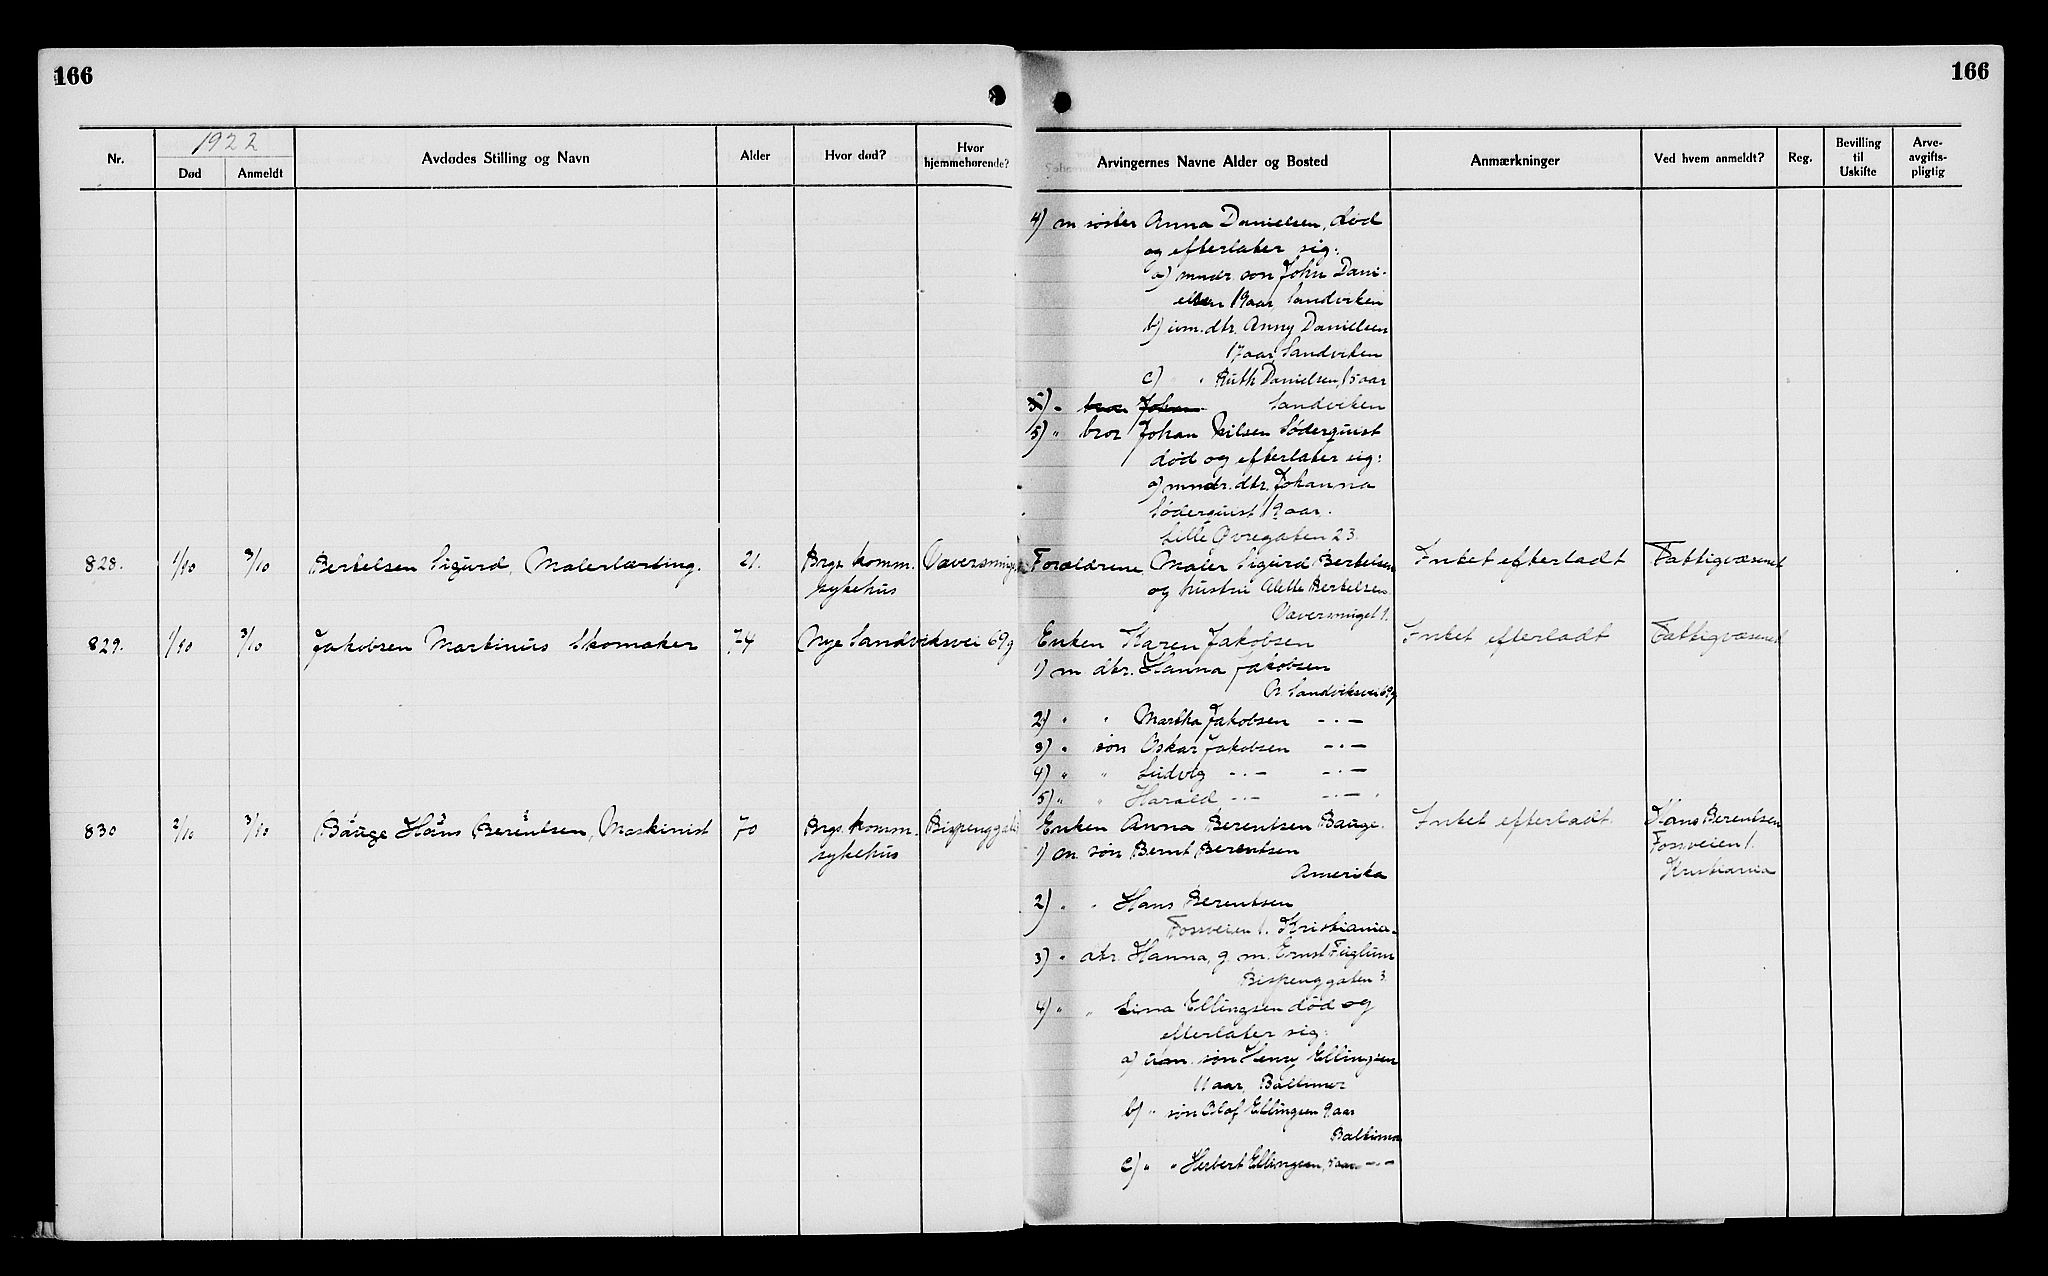 166
166
1922
Nr.
Død
Anmeldt
Avdødes Stilling og Navn
Alder
Hvor død?
Hvor
hjemmehørende?
Arvingernes Navne Alder og Bosted
Anmærkninger
Ved hvem anmeldt?
Reg.
Bevilling
til
Uskifte
Arve-
avgifts-
pligtig
4) m søster Anna Danielsen, død
og efterlater sig:
a) mndr. søn John Dani-
elsen 19 aar, Sandviken
b) um. dtr. Anny Danielsen
17 aar, Sandviken
c) " Ruth Danielsen, 15 aar
5) " bror Johan Sandviken
5) " bror Johan Nilsen Søderquist
død og efterlater sig:
a) mndr. dtr. Johanna
Søderquist 19 aar.
Lille Øvregaten 23.
828. 1/10 3/10 Bertelsen Sigurd, Malerlærling. 21. Brgs. komm. Foreldrene, Maler Sigurd Bertelsen Intet efterladt Fattigvæsenet
sykehus og hustru Alette Bertelsen
829. 1/10 3/10 Jakobsen Martinus Skomaker 74 Nye Sandviksvei 69g Enken Karen Jakobsen Intet efterladt Fattigvæsenet
1) m dtr. Hanna Jakobsen
N. Sandviksvei 69g
2) " " Martha Jakobsen -"-
3) " søn Oskar Jakobsen -"-
4) " " Ludvig -"- -"-
5) " " Harald -"- -"-
830 2/10 3/10 Bauge Hans Berentsen, Maskinist 70 Brgs. komm. Bispenggate Enken Anna Berentsen Bauge. Intet efterladt. Hans Berentsen
sykehus 1) m søn Bernt Berentsen Fossveien 1.
Amerika Kristiania
2) " " Hans Berentsen
Fossveien 1. Kristiania
3) " dtr. Hanna, g. m. Ernst Fuglum
Bispenggaten 3
4) " " Lina Ellingsen død og
efterlater sig:
a) um. søn Henry Ellingsen
11 aar, Baltimor
b) " søn Olof Ellingsen 9 aar
Baltimor
c) " " Herbert Ellingsen, 5 aar -"-